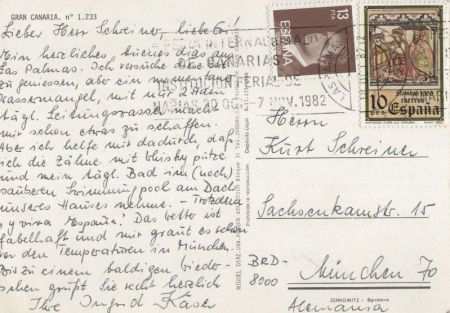 GRAN CANARIA. n° 1.233
Lieber Herr Schreiner, liebe Eri!
Mein herzliches, buenos dias aus
Las Palmas. Ich versuche diese Woche
zu geniessen, aber ein momentaner
Wassermangel, mit nur 2 Stden
tägl. Leitungswasser macht
mir schon etwas zu schaffen.
Aber ich helfe mir dadurch, daß
ich die Zähne mit Whisky putze
und mein tägl. Bad im (noch)
sauberen Swimmingpool am Dach
unseres Hauses nehme. - Trotzdem
y viva España! Das Wetter ist
fabelhaft und mir graut es schon
vor den Temperaturen in München.
Bis zu einem baldigen Wieder-
sehen grüßt Sie recht herzlich
Ihre Ingrid Käser
CANARIAS
7 NOV. 1982
13
PTA
ESPAÑA
16
correos
España
Depósito Legal
Prohibida la reproducción
Herrn
Kurt Schreiner
Sachsenkamstr. 15
BRD-
8000 München 70
Alemania
ZERKOWITZ - Barcelona